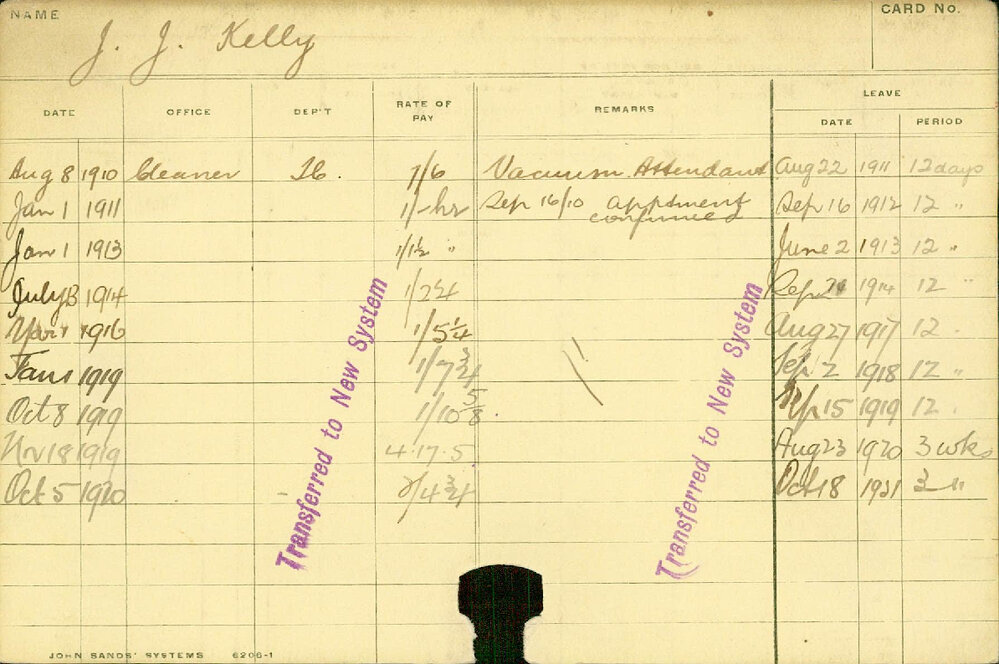 NAME
CARD NO.
J. J. Kelly
DATE OFFICE DEP'T RATE OF PAY REMARKS LEAVE
DATE PERIOD
Aug 8 1910 Cleaner 7/6 Vacuum Attendant Aug 22 1911 12 days
Jan 1 1911 1/- hr Sep 16/10 apptment confirmed Sep 16 1912 12 "
Jan 1 1913 1/1½ " June 2 1913 12 "
July 13 1914 1/2¼ Sep 1914 12 "
1916 1/5¼ Aug 27 1917 12 "
1919 1/7¾ Sep 2 1918 12 "
Oct 8 1919 1/10⅝ 15 1919 12 "
Nov 18 1919 4.17.5 Aug 23 1920 3 wks
Oct 5 1920 2/4¾ Oct 18 1921 3 "
Transferred to New System
Transferred to New System
JOHN SANDS' SYSTEMS 6206-1